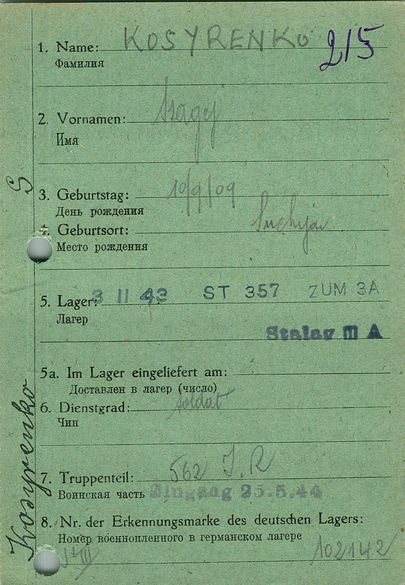 1. Name: KOSYRENKO 215
Фамилия
2. Vornamen:
Имя
3. Geburtstag: 10/9/09
День рождения
4. Geburtsort:
Место рождения
5. Lager: 3 11 43 ST 357 ZUM 3A
Лагер
Stalag III A
5a. Im Lager eingeliefert am:
Доставлен в лагер (число)
6. Dienstgrad: soldat
Чин
7. Truppenteil: 562 J.R
Воинская часть Eingang 25.5.44
8. Nr. der Erkennungsmarke des deutschen Lagers:
Номер военнопленного в германском лагере
102142
Kosyrenko S